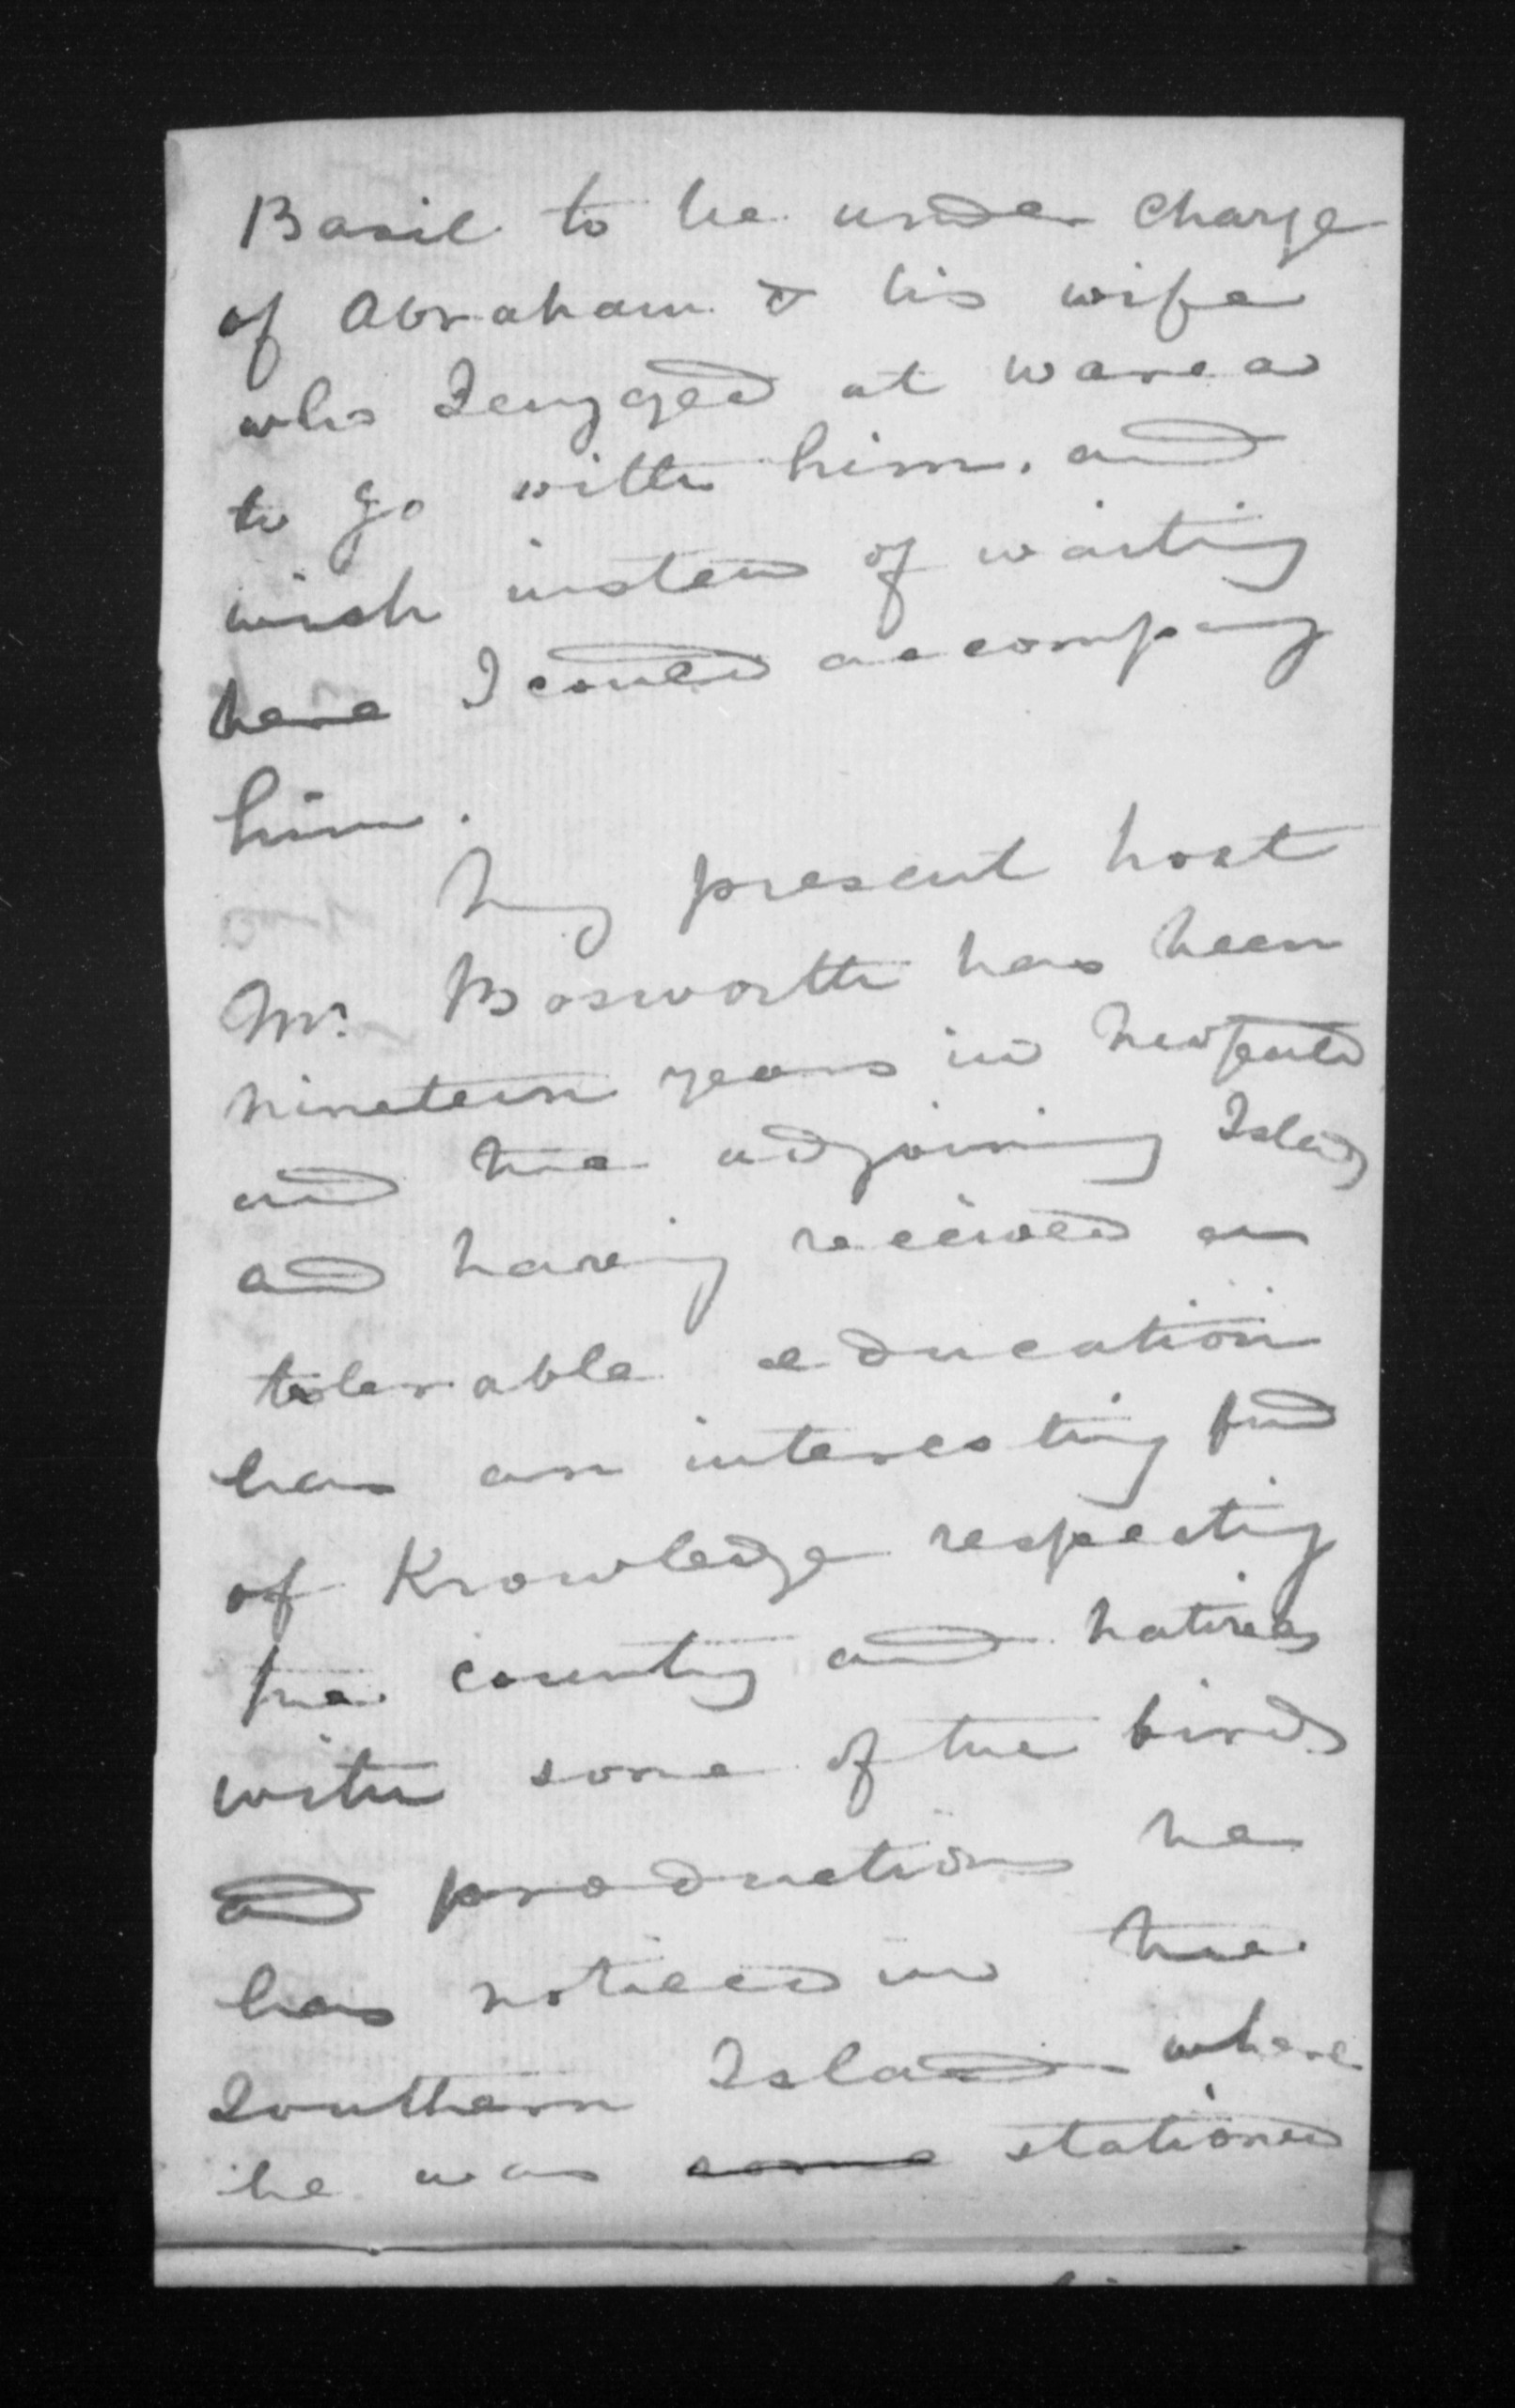 Basil to be under charge
of Abraham & his wife
who I engaged at Warea
to go with him. and
wish instead of waiting
here I could accompany
him.
My present host
Mr. Bosworth has been
nineteen years in
and the adjoining Islands
and having received an
tolerable education
has an interesting fund
of Knowledge respecting
the country and natives
with some of the birds
and productions he
has noticed in the
Southern Island where
he was some stationed